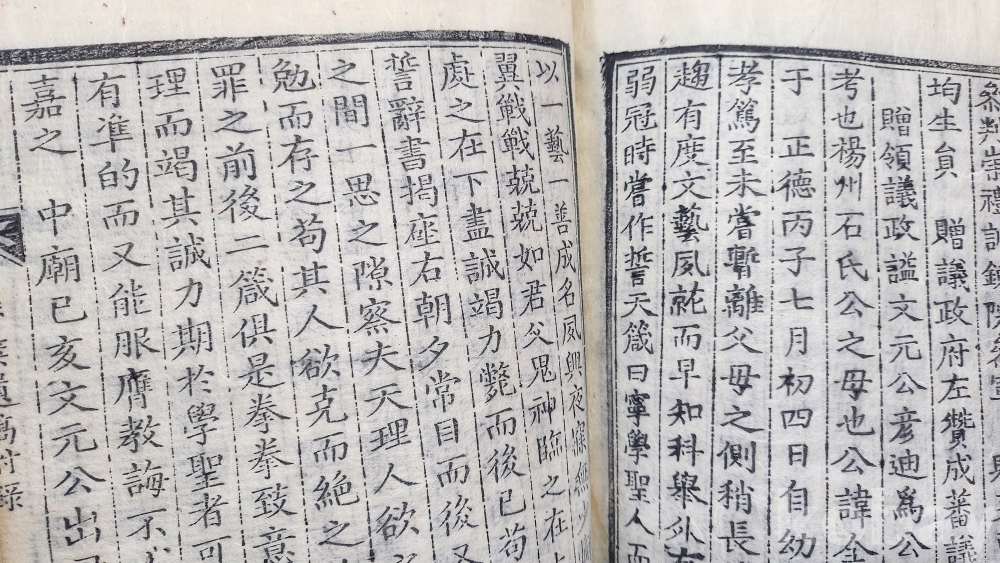 均生貟　贈議政府左贊成蕃議
贈領議政謚文元公彦迪爲公
考也楊州石氏公之母也公諱全
于　正德丙子七月初四日自幼
孝篤至未嘗暫離父母之側稍長
趨有度文藝夙就而早知科舉外有
弱冠時嘗作誓天箴曰寧學聖人而
以一藝一善成名夙興夜寐
翼戰戰兢兢如君父鬼神臨之在
處之在下盡誠竭力斃而後已苟
誓辭書揭座右朝夕常目而後又
之間一思之隙察夫天理人欲
勉而存之苟其人欲克而絶之
罪之前後二箴俱是拳拳致意
理而竭其誠力期於學聖者可
有準的而又能服膺教誨不
嘉之　中廟已亥文元公出